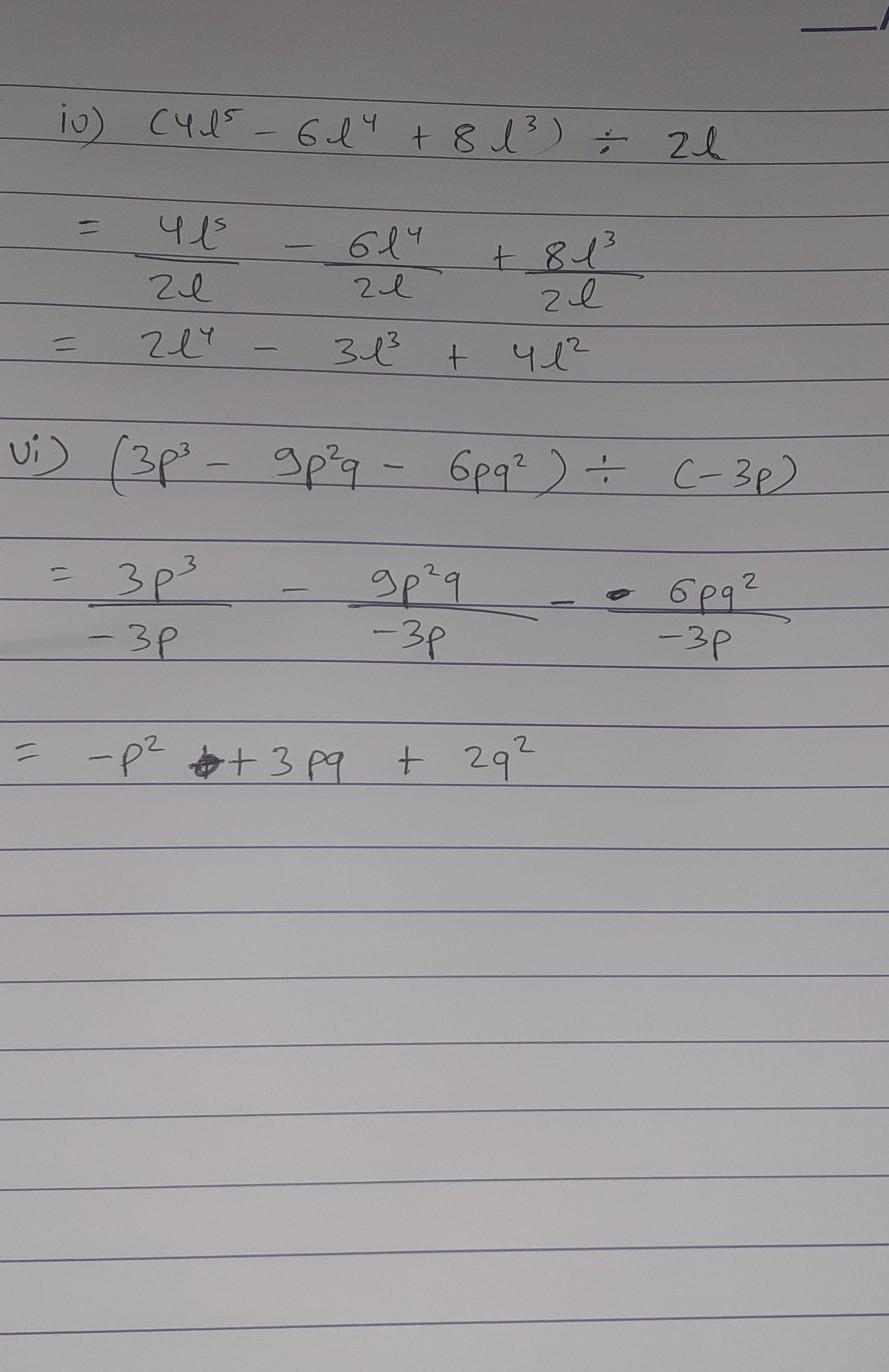 iv) (4l⁵ - 6l⁴ + 8l³) ÷ 2l
= 4l⁵/2l - 6l⁴/2l + 8l³/2l
= 2l⁴ - 3l³ + 4l²
vi) (3p³ - 9p²q - 6pq²) ÷ (-3p)
= 3p³/-3p - 9p²q/-3p - 6pq²/-3p
= -p² + 3pq + 2q²